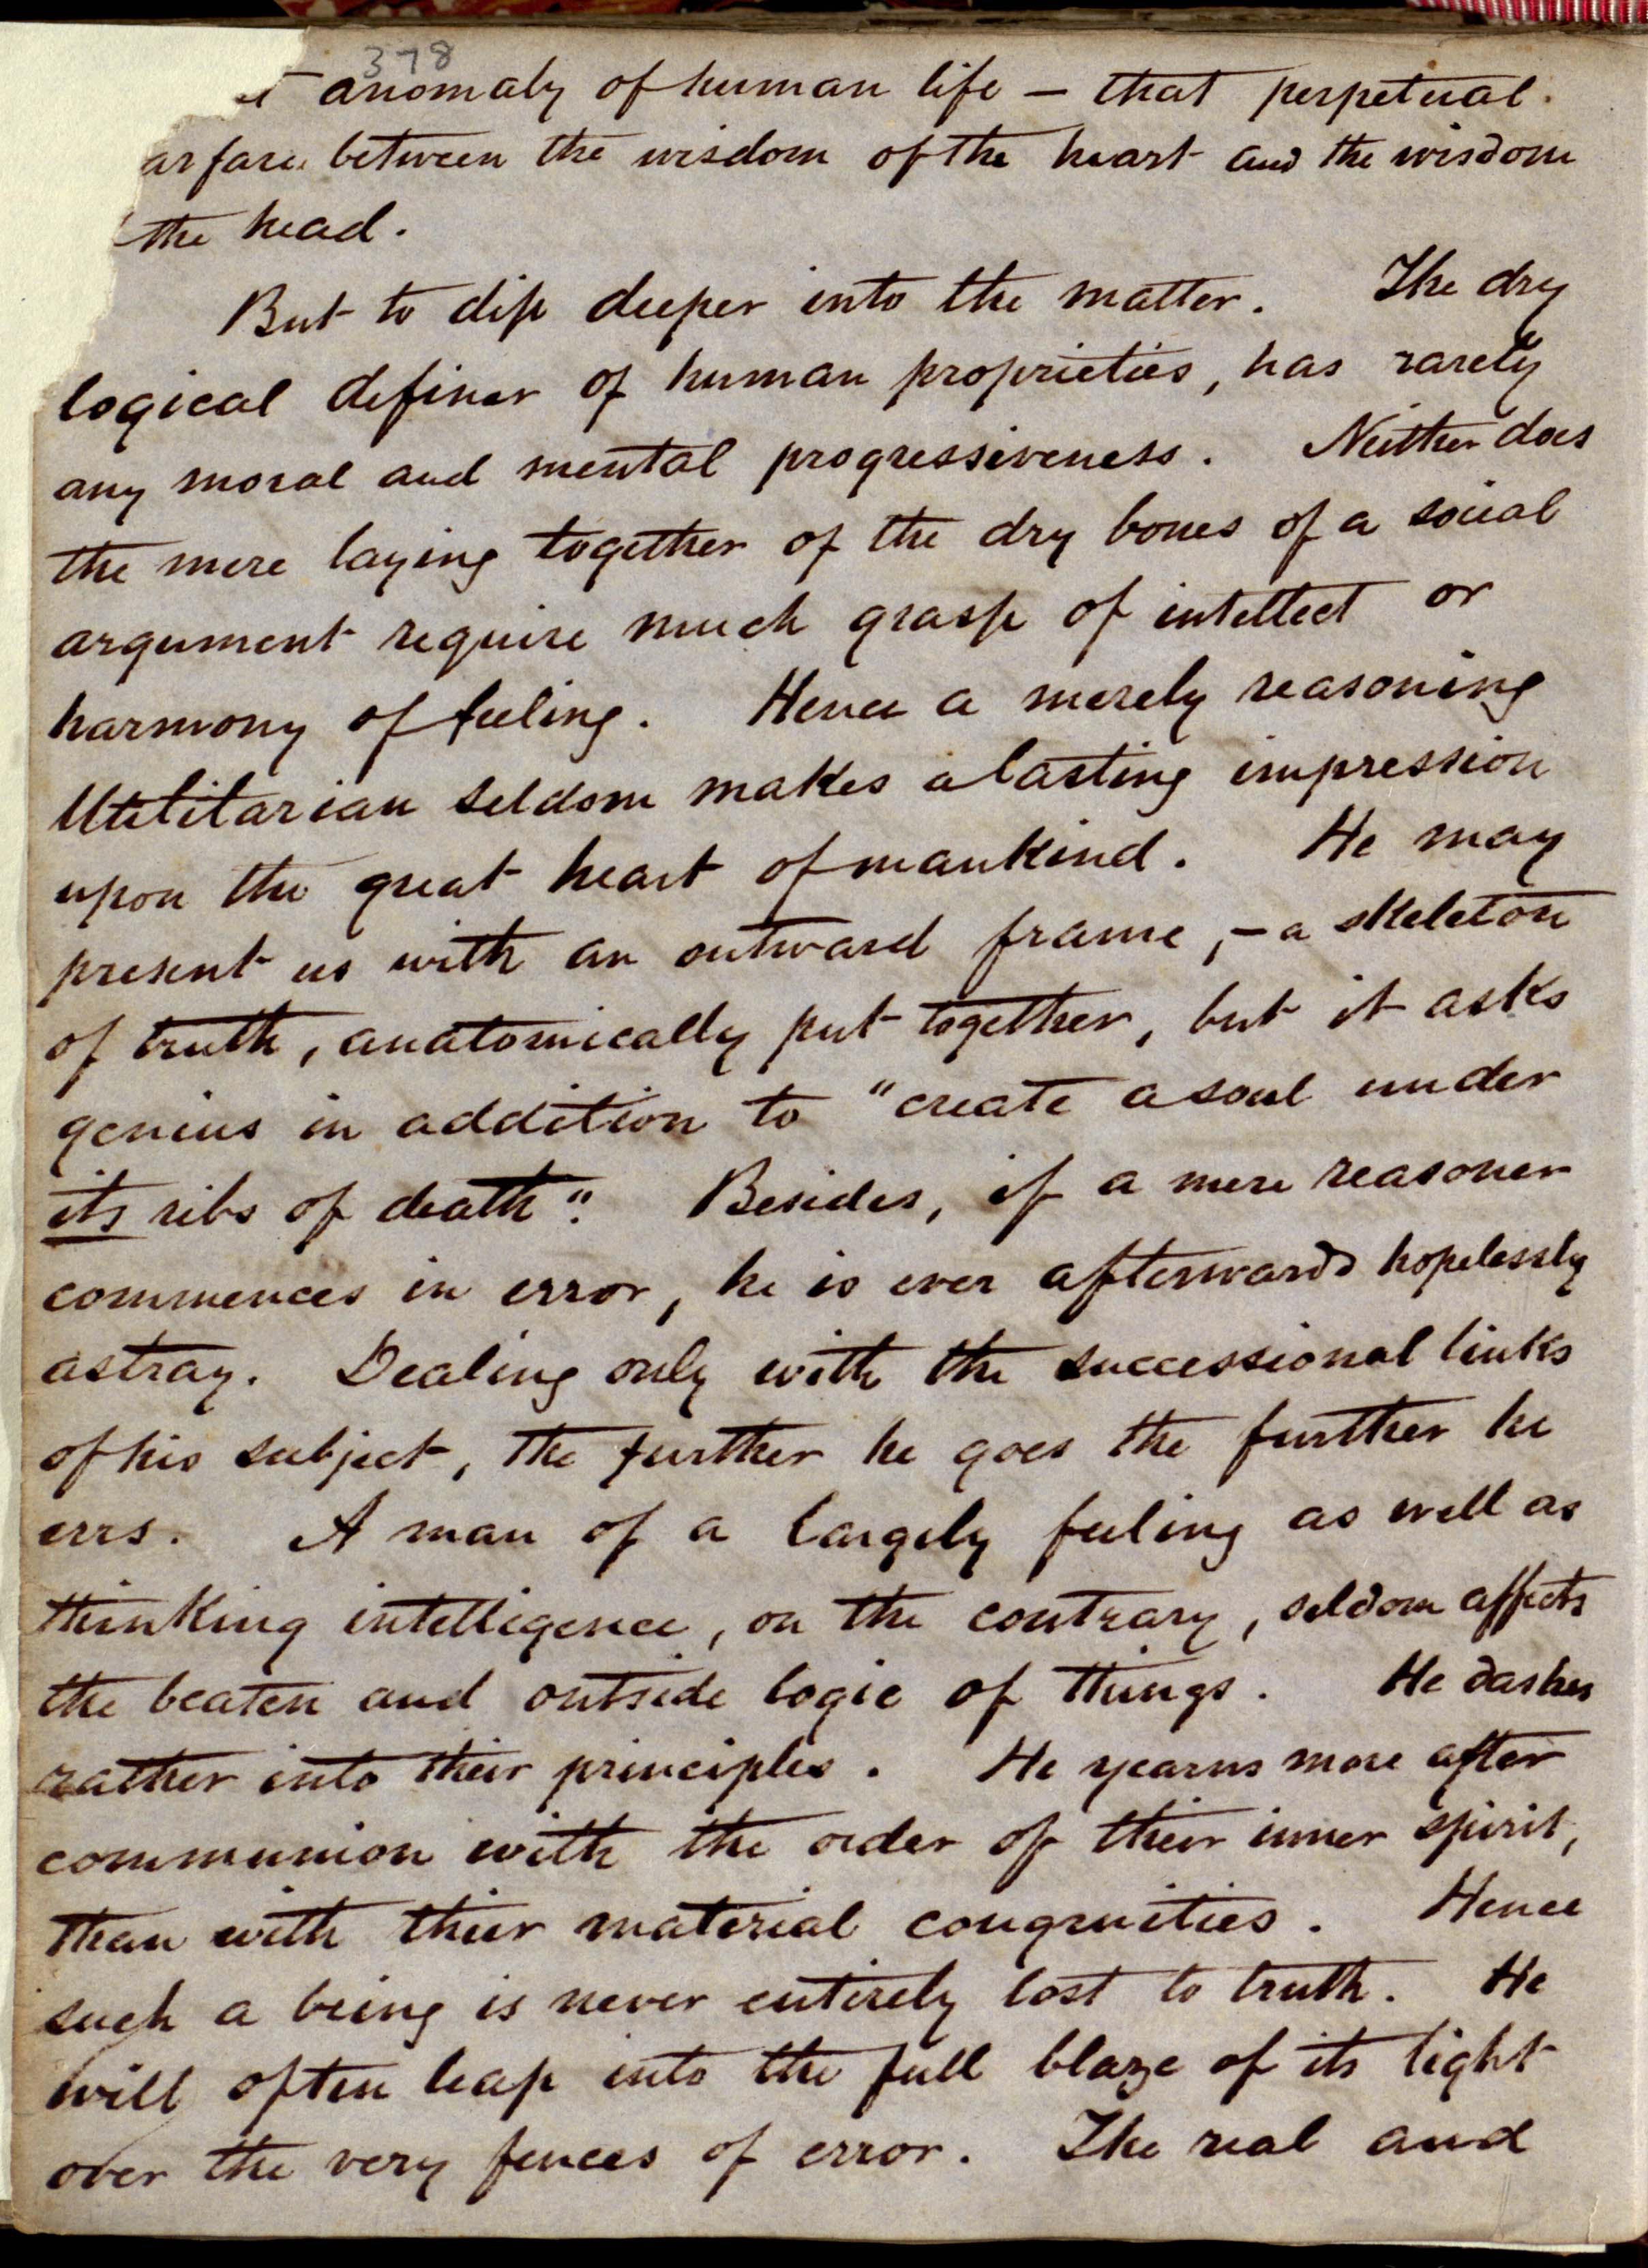 378
anomaly of human life — that perpetual
arfare between the wisdom of the heart and the wisdom
the head.
But to dip deeper into the matter. The dry
logical definer of human proprieties, has rarely
any moral and mental progressiveness. Neither does
the mere laying together of the dry bones of a social
argument require much grasp of intellect or
harmony of feeling. Hence a merely reasoning
Utilitarian seldom makes a lasting impression
upon the great heart of mankind. He may
present us with an outward frame, — a skeleton
of truth, anatomically put together, but it asks
genius in addition to "create a soul under
its ribs of death". Besides, if a mere reasoner
commences in error, he is ever afterwards hopelessly
astray. Dealing only with the successional links
of his subject, the further he goes the further he
errs. A man of a largely feeling as well as
thinking intelligence, on the contrary, seldom affects
the beaten and outside logic of things. He dashes
rather into their principles. He yearns more after
communion with the order of their inner spirit,
than with their material congruities. Hence
such a being is never entirely lost to truth. He
will often leap into the full blaze of its light
over the very fences of error. The real and